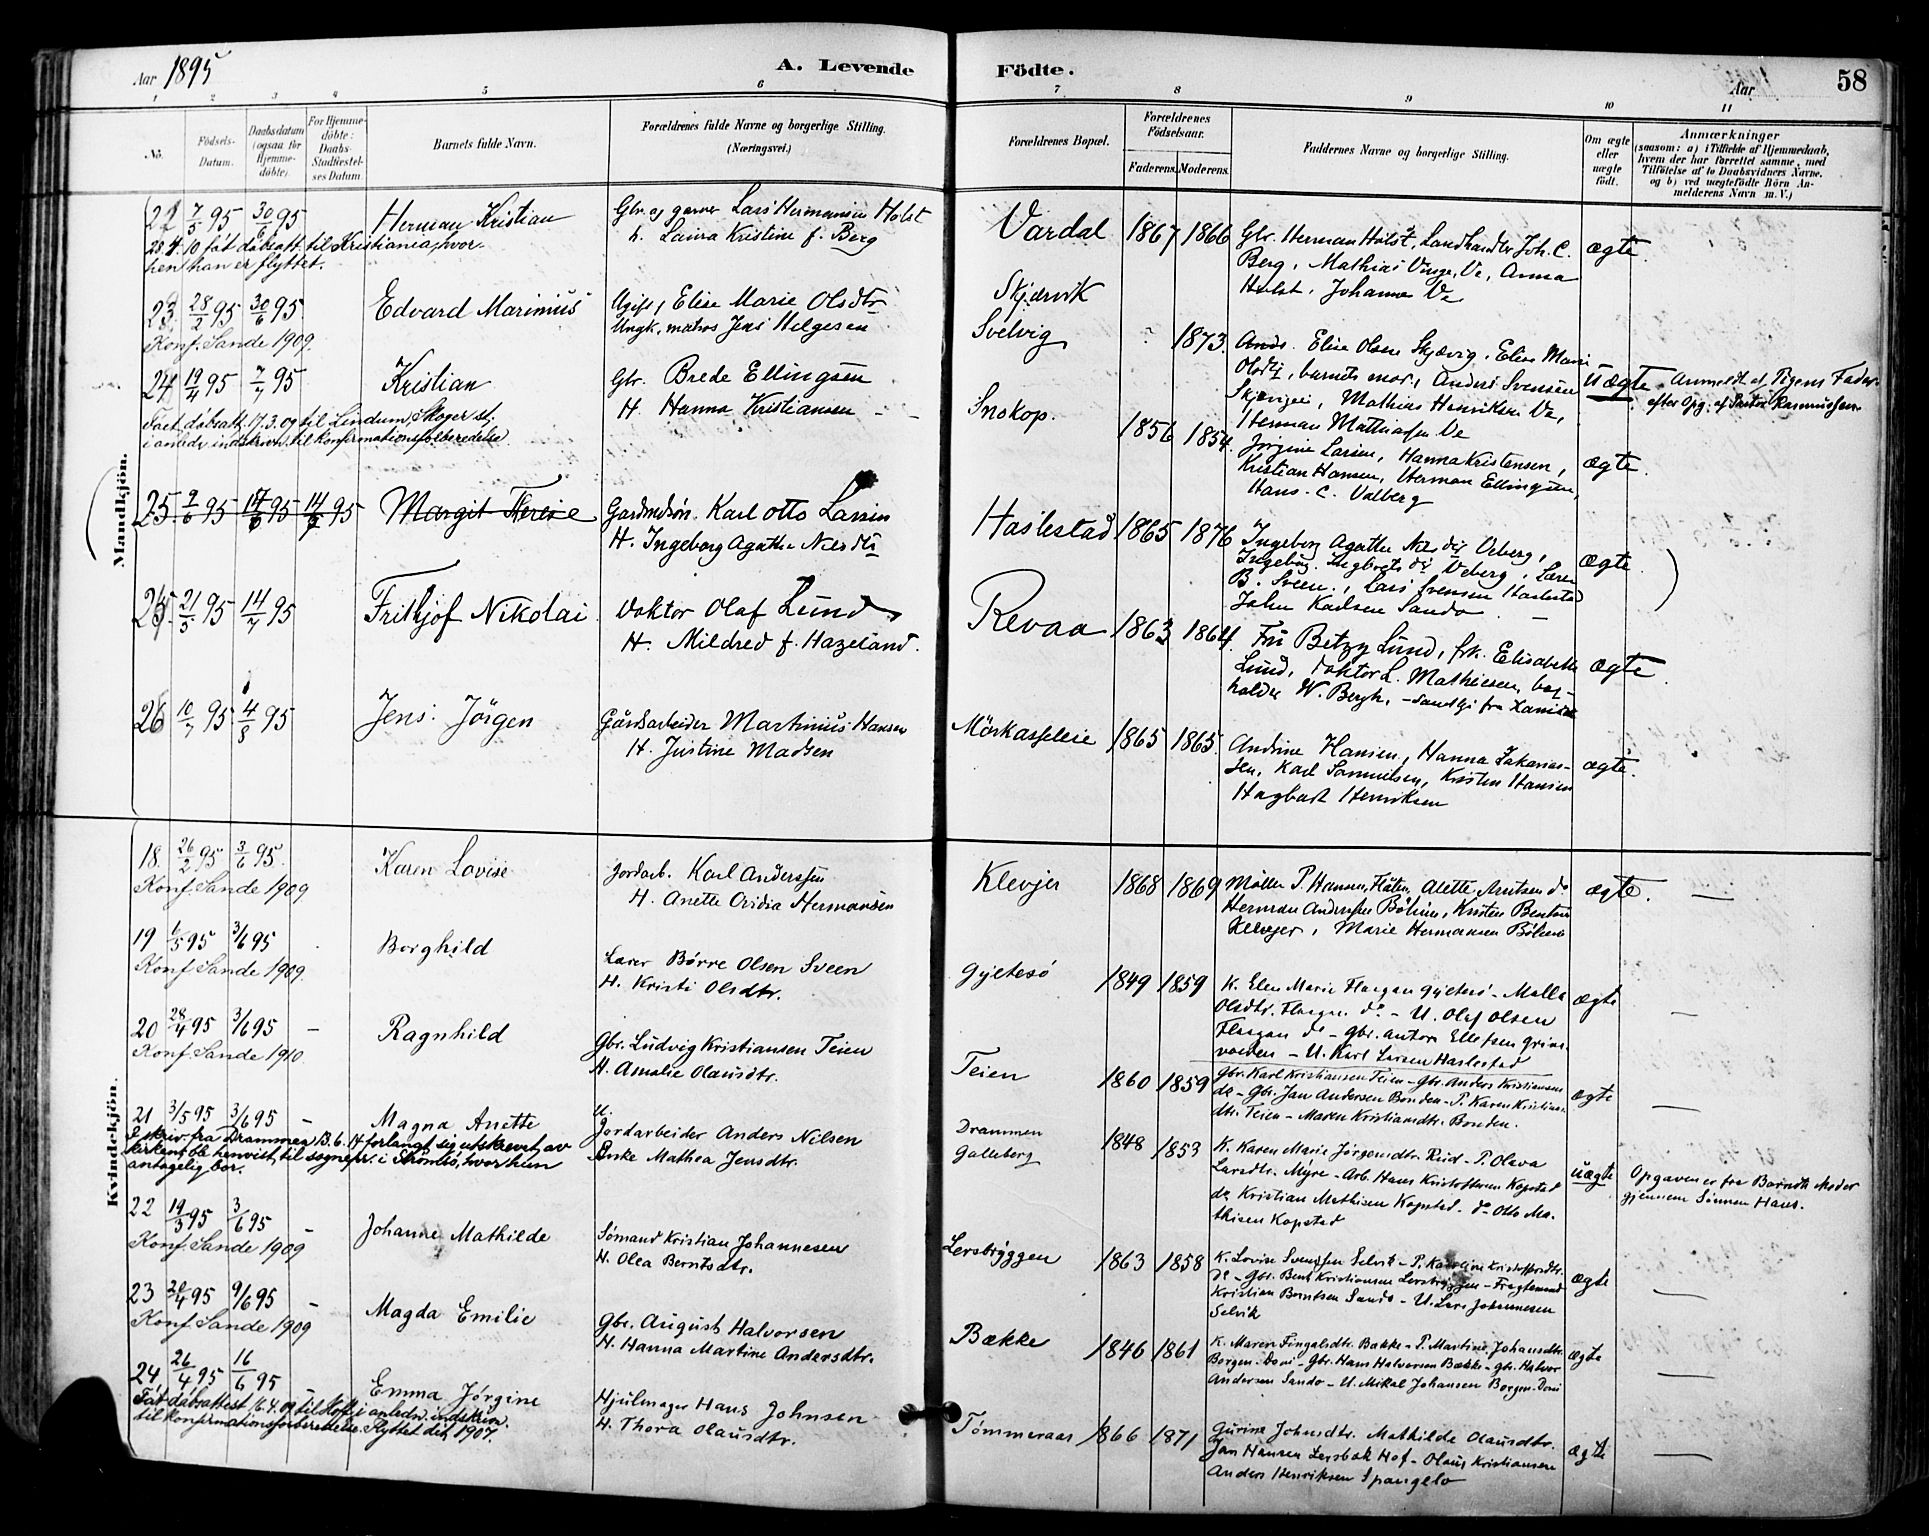 Aar 1895
A. Levende
Födte.
Aar
58
1 2 3 4 5 6 7 8 9 10 11
No.
Födsels-
Datum.
Daabsdatum
(ogsaa for
Hjemme-
döbte).
For Hjemme-
döbte:
Daabs-
Stadfæstel-
ses Datum.
Barnets fulde Navn.
Forældrenes fulde Navne og borgerlige Stilling.
(Næringsvei.)
Forældrenes Bopæl.
Forældrenes
Födselsaar.
Faderens.
Moderens.
Faddernes Navne og borgerlige Stilling.
Om ægte
eller
uægte
født.
Anmærkninger
(saasom: a) i Tilfælde af Hjemmedaab,
hvem der har forrettet samme, med
Tilföielse af to Daabsvidners Navne,
og b) ved uægtefödte Börn An-
melderens Navn m. V.)
Mandkjön.
22 7/5 95 30/6 95 Herman Kristian
Gbr. og garver Lars Hermansen Holst
h. Laura Kristine f. Berg
28.4.10 fåt dåbsatt. til Kristiania, hvor-
hen han er flyttet.
Vardal 1867 1866
Gbr. Herman Holst, Landhandler Joh. C.
Berg, Mathias Unge, Ve, Anna
Holst, Johanne Ve
ægte.
23 28/2 95 30/6 95 Edvard Marinius
Ugift, Elise Marie Olsdtr
Ungk. matros Jens Helgesen
Konf. Sande 1909.
Skjærvik
Svelvig
1873.
Elise Olsen Skjævig, Elise Marie
Olsdtr, barnets mor, Anders Svensen
Skjævigen, Mathias Henriksen Ve,
Herman Mathiassen Ve
Uægte
Anmeldt af Pigens Fader
efter Opg. af Pastor Rasmussen.
24 19/4 95 7/7 95 Kristian
Gbr. Brede Ellingsen
H. Hanna Kristiansen
Faet dåbsatt. 17.3.09 til Lindum, Skoger st,
i anledn. indskrivn. til konfirmationsforberedelse.
Snekop.
1856 1854.
Jørgine Larsen, Hanna Kristensen,
Kristian Hansen, Herman Ellingsen,
Hans. C. Valberg
ægte.
25. 9/6 95 14/7 95 Margit Therese
Gardmdsøn. Karl Otto Larsen
H. Ingeborg Agathe Nilsdtr
Haslestad 1865 1876
Ingeborg Agathe Nilsdtr Veberg,
Ingeborg Ingbretsdtr Veberg, Lærer
B. Sveen, Lars Svensen Haslestad
John Karlsen Sando
ægte
25 21/5 95 14/7 95 Frithjof Nikolai
Doktor Olaf Lund
H. Mildred f. Hazeland.
Revaa 1863 1864.
Fru Betzy Lund, frk. Elisabeth
Lund, Doktor L. Mathiesen, bog-
holder W. Bergh,
ægte
26 10/7 95 4/8 95 Jens Jörgen
Gårdsarbeider Martinius Hansen
H. Justine Madsen
Mörkasseleie 1865 1865.
Andrine Hansen, Hanna Zakarias-
sen, Karl Samuelsen, Kristen Hansen
Hagbart Henriksen
ægte.
Kvindekjön.
18. 26/2 95 3/6 95. Karen Lovise
Jordarb. Karl Anderssen
H. Anette Oridia Hermansen
Konf. Sande 1909
Klevjer 1868 1869
Möller P. Hansen, Flåten, Alette Arntsen do
Herman Anderssen Bölum, Kristen Bentsen
Klevjer, Marie Hermansen Bölum
ægte. —
19 1/5 95 3/6 95 Borghild
Lærer Børre Olsen Sveen
H. Kristi Olsdtr.
Konf. Sande 1909.
Gjeltesö 1849 1859
K. Elen Marie Haagan Gjeltesö – Malla
Olsdtr. Haagan do. – U. Olaf Olsen
Haagan do – Gbr. Anton Ellefsen Grims-
voeden – U. Karl Larsen Haslestad
ægte —
20 28/4 95 3/6 95 – Ragnhild
Gbr. Ludvig Kristiansen Teien
H. Amalie Olausdtr.
Konf. Sande 1910.
Teien 1860 1859
Gbr. Karl Kristiansen Teien – Gbr. Anders Kristiansen
do – Gbr. Jan Andersen Bonden – P. Karen Kristians-
dtr. Teien – Maren Kristiansdtr. Bonden.
ægte —
21 3/5 95 3/6 95 – Magna Anette
U.
Jordarbeider Anders Nilsen
Enke Mathea Jensdtr.
I skriv. fra Drammen 13.6.14 forlangt sig utskrevet av
kirken; ble henvist til sognepr. i Strömsö, hvor hun
antagelig bor.
Drammen
Galleberg
1848 1853
K. Karen Marie Jørgensdtr. Rud – P. Olava
Larsdtr. Myre – Arb. Hans Kristoffersen Kopstad
do Kristian Mathisen Kopstad – do Otto Ma-
thisen Kopstad
uægte
Opgaven er fra Barnets Moder
gjennem Sönnen Hans.
22 19/3 95 3/6 95 – Johanne Mathilde
Sømand Kristian Johannesen
H. Olea Berntsdtr.
Konf. Sande 1909
Lersbryggen 1863 1858
K. Lovise Svensen Selvik – P. Karoline Kristoffersdtr.
do – Gbr. Bent Kristiansen Lersbryggen – Fragtemand
Kristian Berntsen Sando – U. Lars Johannesen
Selvik
ægte —
23 20/4 95 9/6 95 – Magda Emilie
Gbr. August Halvorsen
H. Hanna Martine Andersdtr.
Konf. Sande 1909
Bække 1846 1861
K. Maren Fingalsdtr. Bække – P. Martine Johansdtr.
Borgen – Gbr. Hans Halvorsen Bække – Gbr. Halvor
Andersen Sando – U. Mikal Johansen Borgen
ægte —
24 26/4 95 16/6 95 – Emma Jörgine
Hjulmager Hans Johnsen
H. Thora Olausdtr.
Fåt dåbsattest 16.4.09 til Hof i anledn. indskrivn.
til konfirmationsforberedelse. Flyttet dit 1907.
Tømmeraas 1866 1871
Gurine Johnsdtr. Mathilde Olausdtr.
Jan Hansen Lersbak Hof – Olaus Kristiansen
Anders Henriksen Spangelo
ægte —